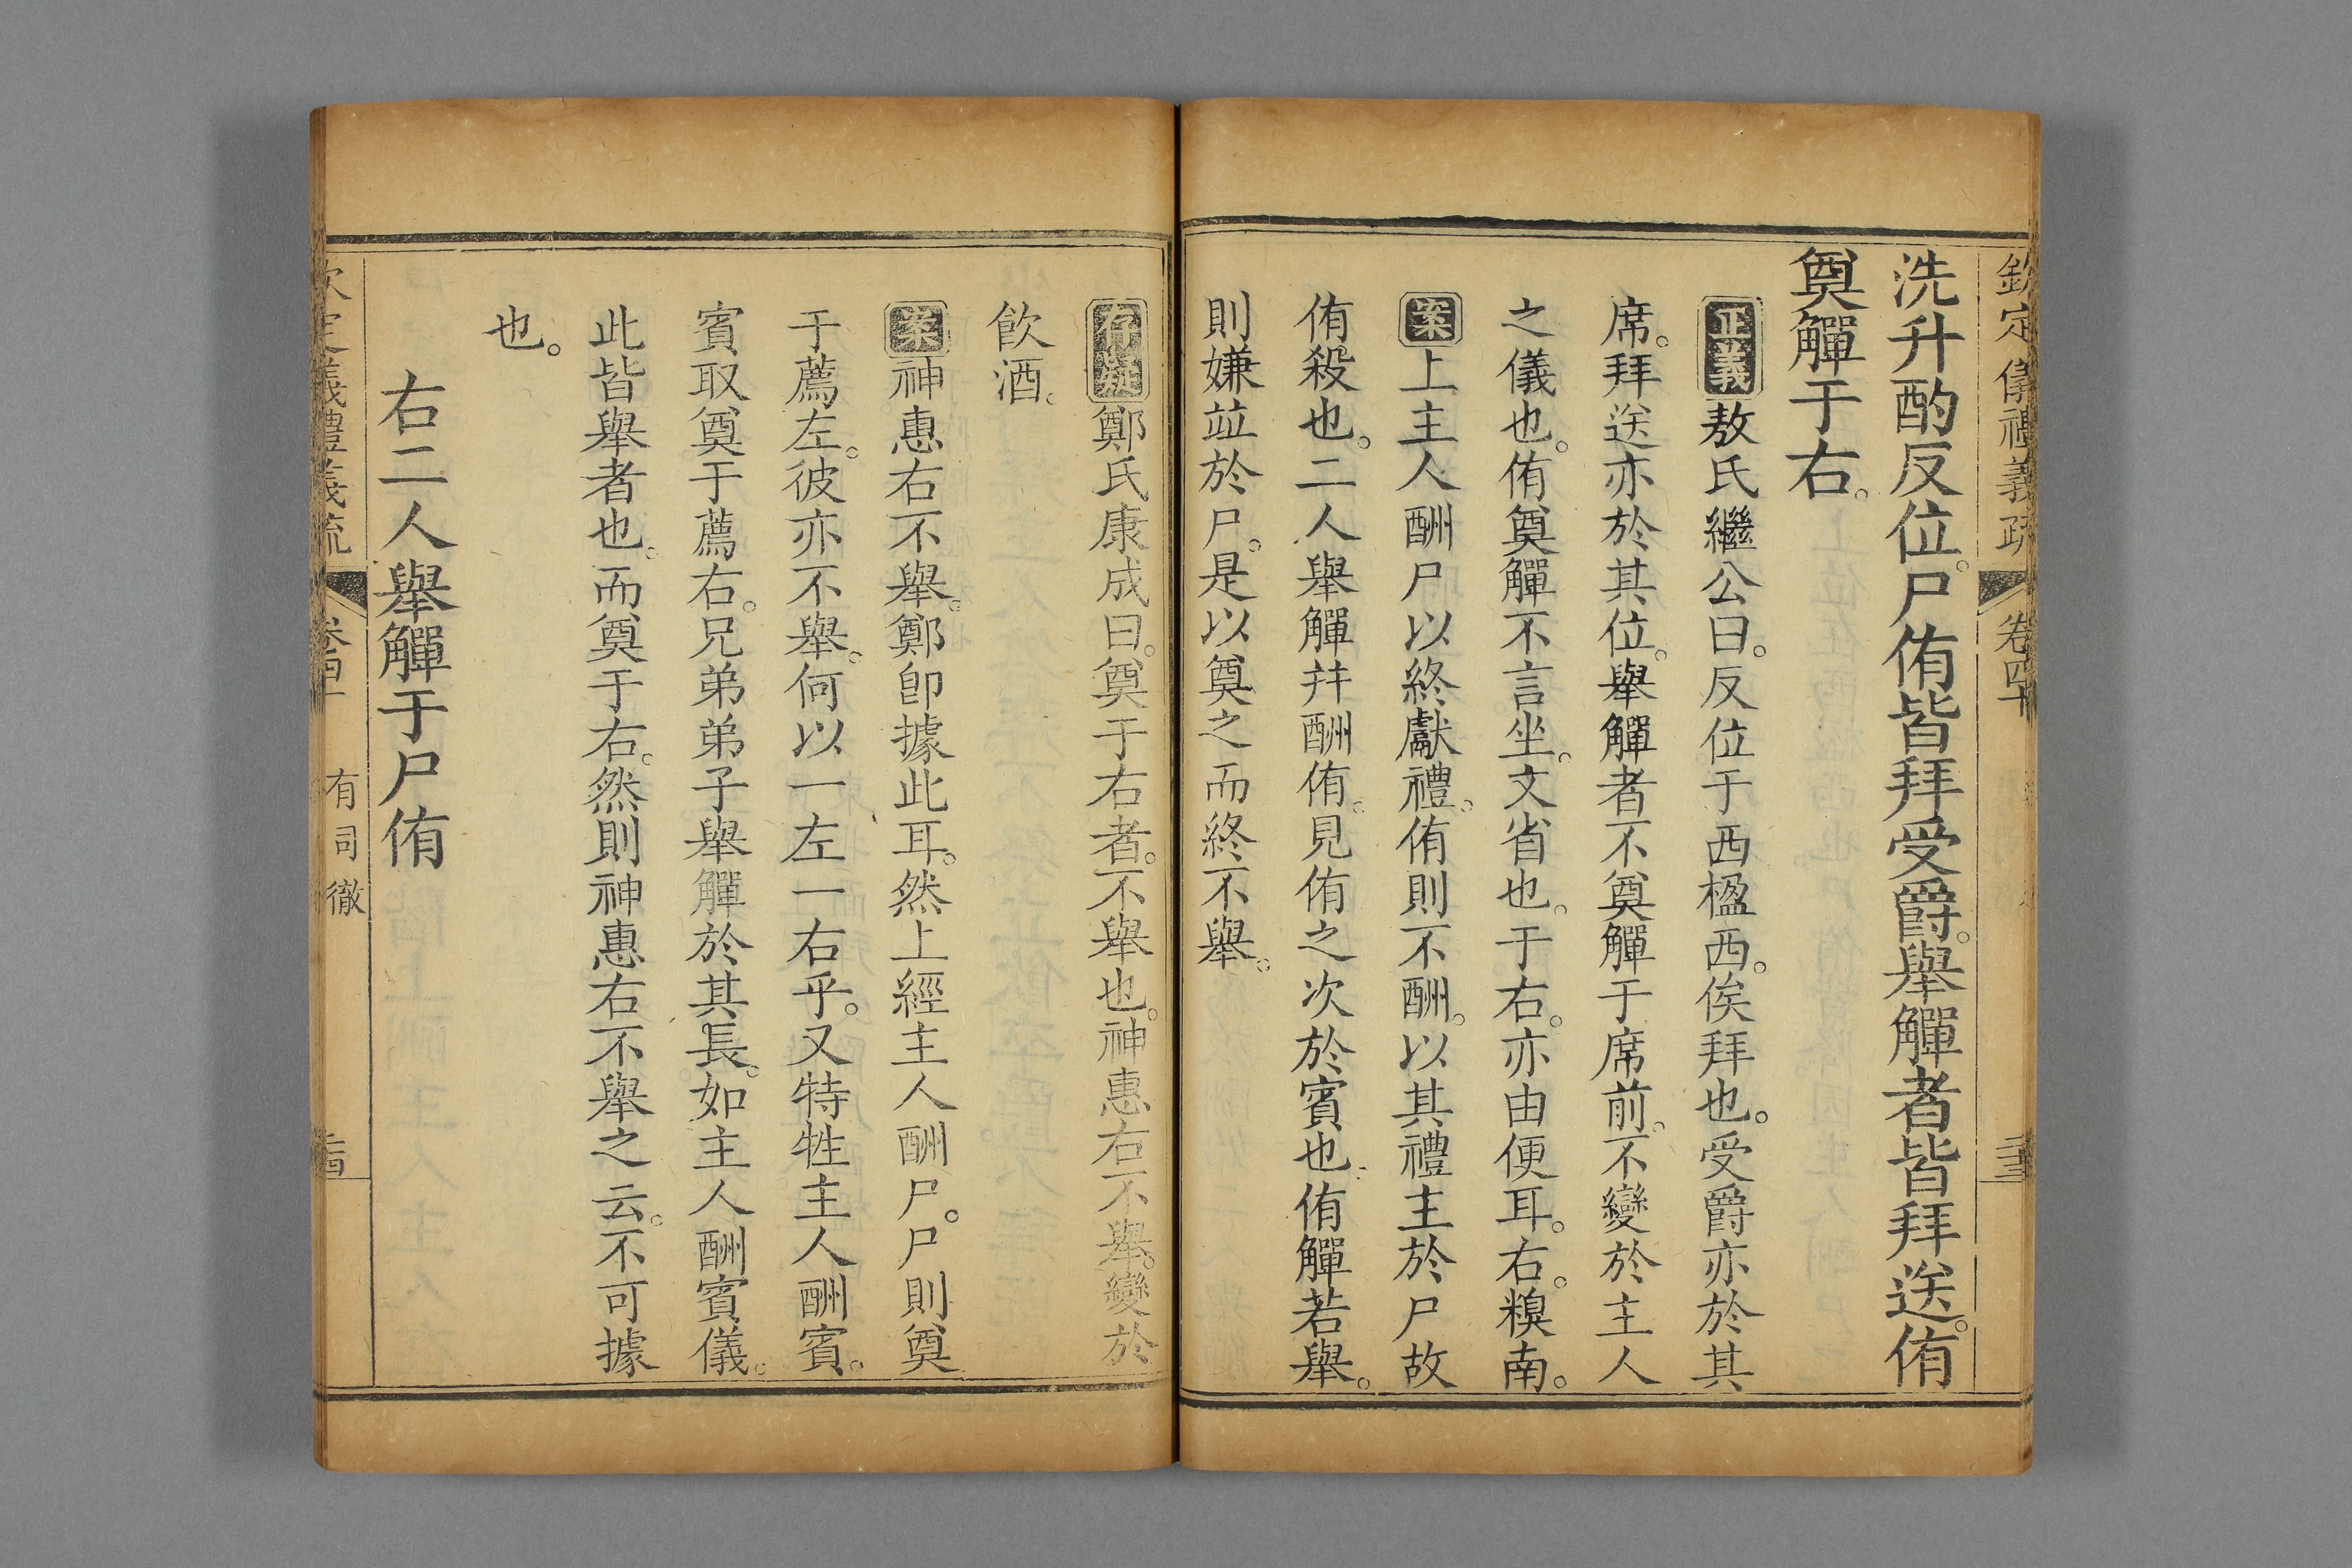 欽定儀禮義疏 卷四十
洗升酌反位。尸侑皆拜受爵。舉觶者皆拜送。侑
奠觶于右。
正義敖氏繼公曰。反位于西楹西。俟拜也。受爵亦於其
席。拜送亦於其位。舉觶者不奠觶于席前。不變於主人
之儀也。侑奠觶不言坐。文省也。于右。亦由便耳。右。糗南。
案上主人酬尸以終獻禮。侑則不酬。以其禮主於尸故
侑殺也。二人舉觶并酬侑。見侑之次於賓也。侑觶若舉。
則嫌竝於尸。是以奠之而終不舉。
存疑鄭氏康成曰。奠于右者。不舉也。神惠右不舉。變於
飲酒。
案神惠右不舉。鄭卽據此耳。然上經主人酬尸。尸則奠
于薦左。彼亦不舉。何以一左一右乎。又特牲主人酬賓。
賓取奠于薦右。兄弟弟子舉觶於其長。如主人酬賓儀。
此皆舉者也。而奠于右。然則神惠右不舉之云。不可據
也。
右二人舉觶于尸侑
欽定儀禮義疏 卷四十 有司徹